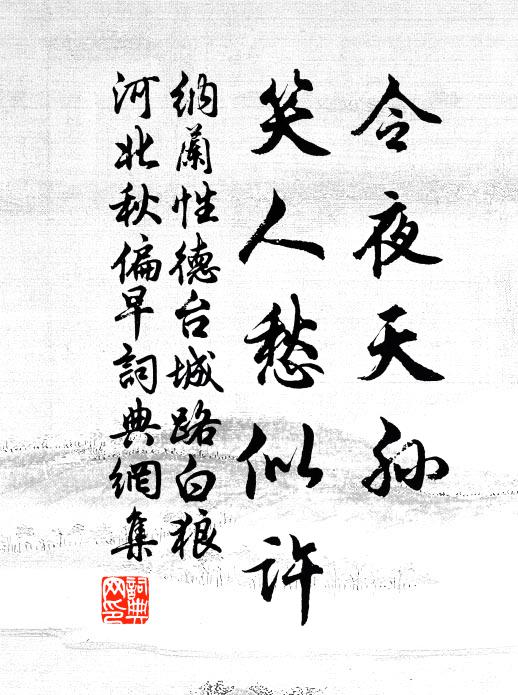 今夜天孙
笑人愁似许
纳兰性德台城路白狼
河北秋偏早詞典網集
詞典
网印